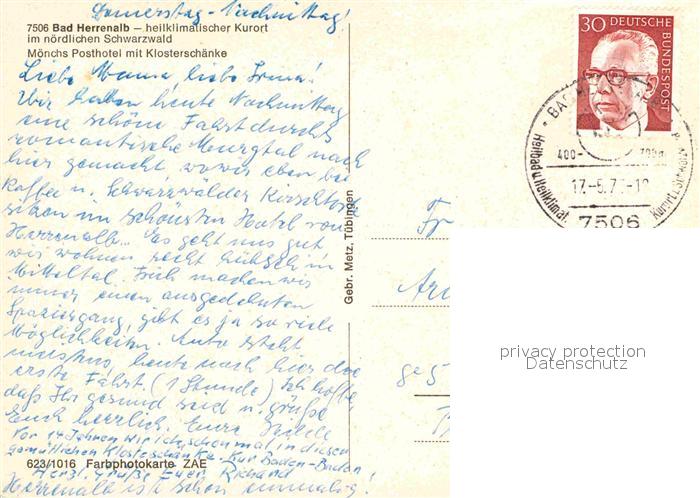 Donnerstag-Nachmittag!
7506 Bad Herrenalb – heilklimatischer Kurort
im nördlichen Schwarzwald
Mönchs Posthotel mit Klosterschänke
Liebe Mama, liebe Irma!
Wir haben heute Nachmittag
eine schöne Fahrt durchs
romantische Murgtal nach
hier gemacht, wo wir eben bei
Kaffee u. Schwarzwälder Kirschtorte
sitzen im schönsten Hotel von
Herrenalb. Es geht uns gut
wir wohnen recht hübsch in
Mitteltal. Früh machen wir
immer einen ausgedehnten
Spaziergang, gibt es ja so viele
Möglichkeiten. Auto steht
meistens, heute nach hier die
erste Fahrt. (1 Stunde) Ich hoffe,
daß Ihr gesund seid u. grüße
Euch herzlich. Eure
Vor 14 Jahren wir schon mal in diesem
gemütlichen Klosterschänke. Kur Baden-Baden!
Herzl. Grüße Euer Richard
Herrenalb ist schön einmalig!
623/1016 Farbphotokarte ZAE
Gebr. Metz, Tübingen
30 DEUTSCHE BUNDESPOST
BAD HERRENALB
400-700m
Heilbad u. Heilklimat. Kurort i. Schwarzw.
7506
Fr
ges
privacy protection
Datenschutz